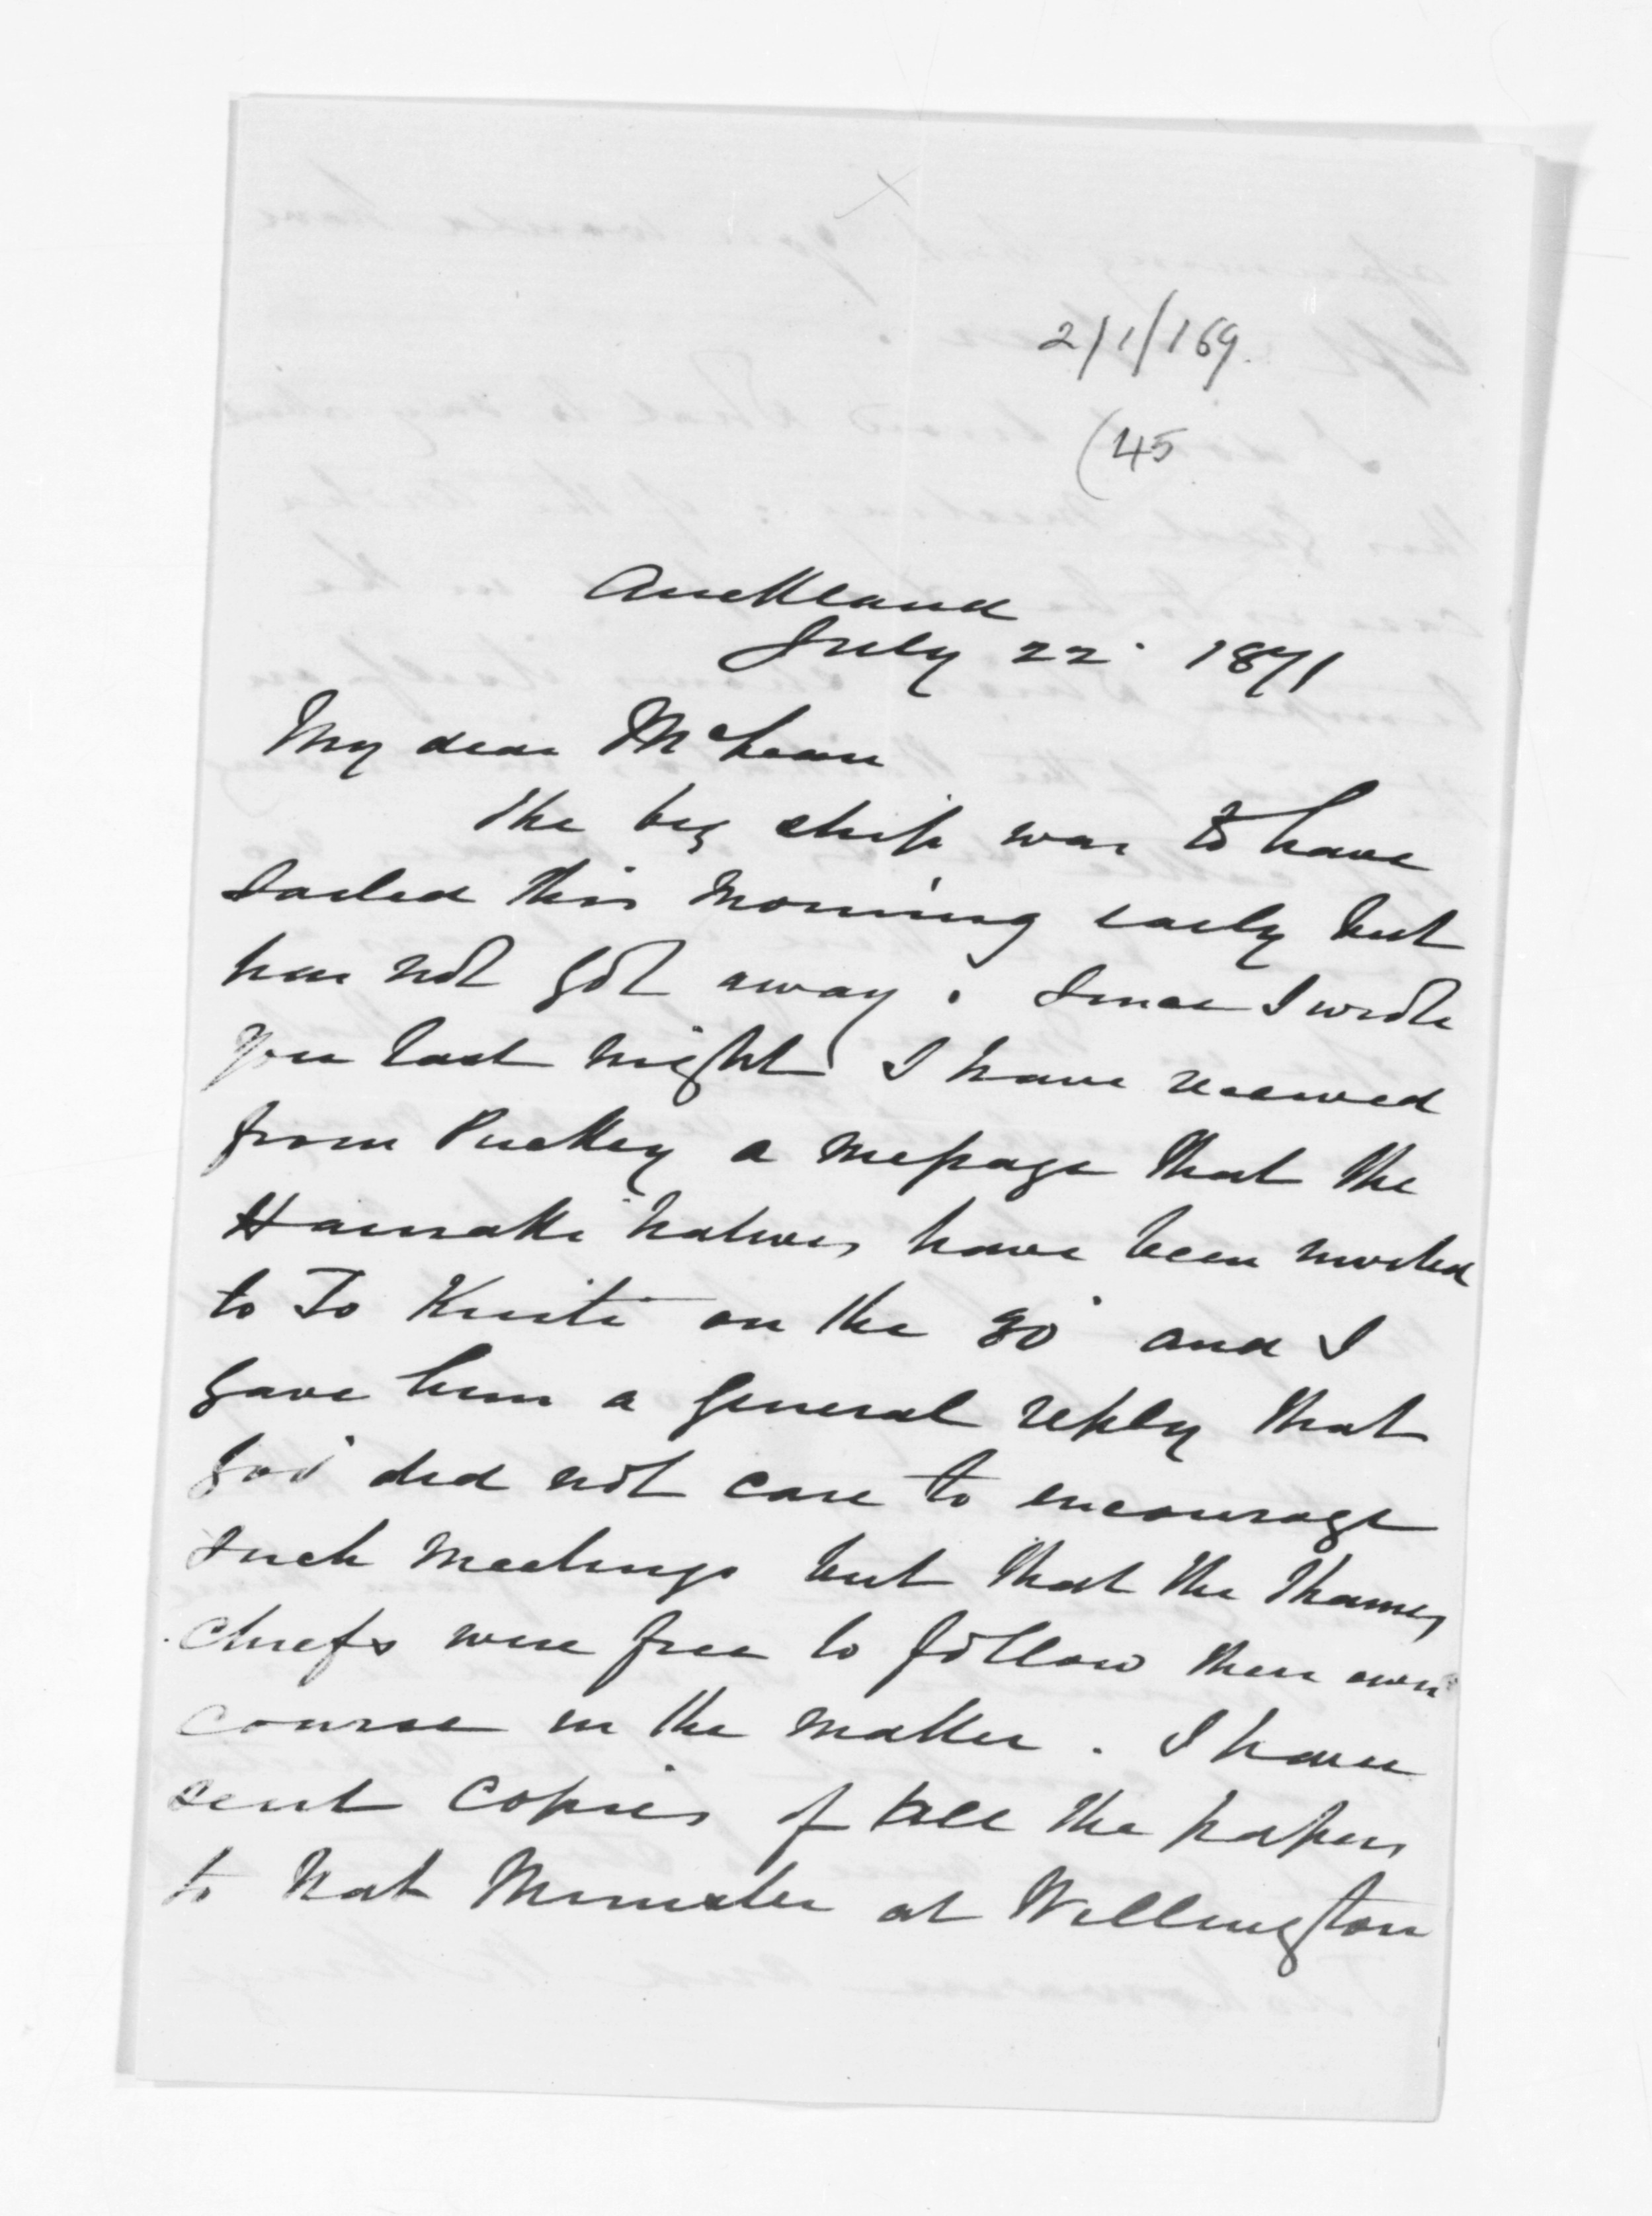 2/1/169.
(45
Auckland
July 22. 1871
My dear McLean
The big ship was to have
sailed this morning early but
has not got away. Since I wrote
you last night I have received
from Puckey a message that the
Hauraki natives have been invited
to To Kuiti on the 30 and I
gave him a general reply that
Govt did not care to encourage
such meetings but that the Thames
chiefs were free to follow their own
course in the matter. I have
sent copies of all the papers
to Nat Minister at Wellington